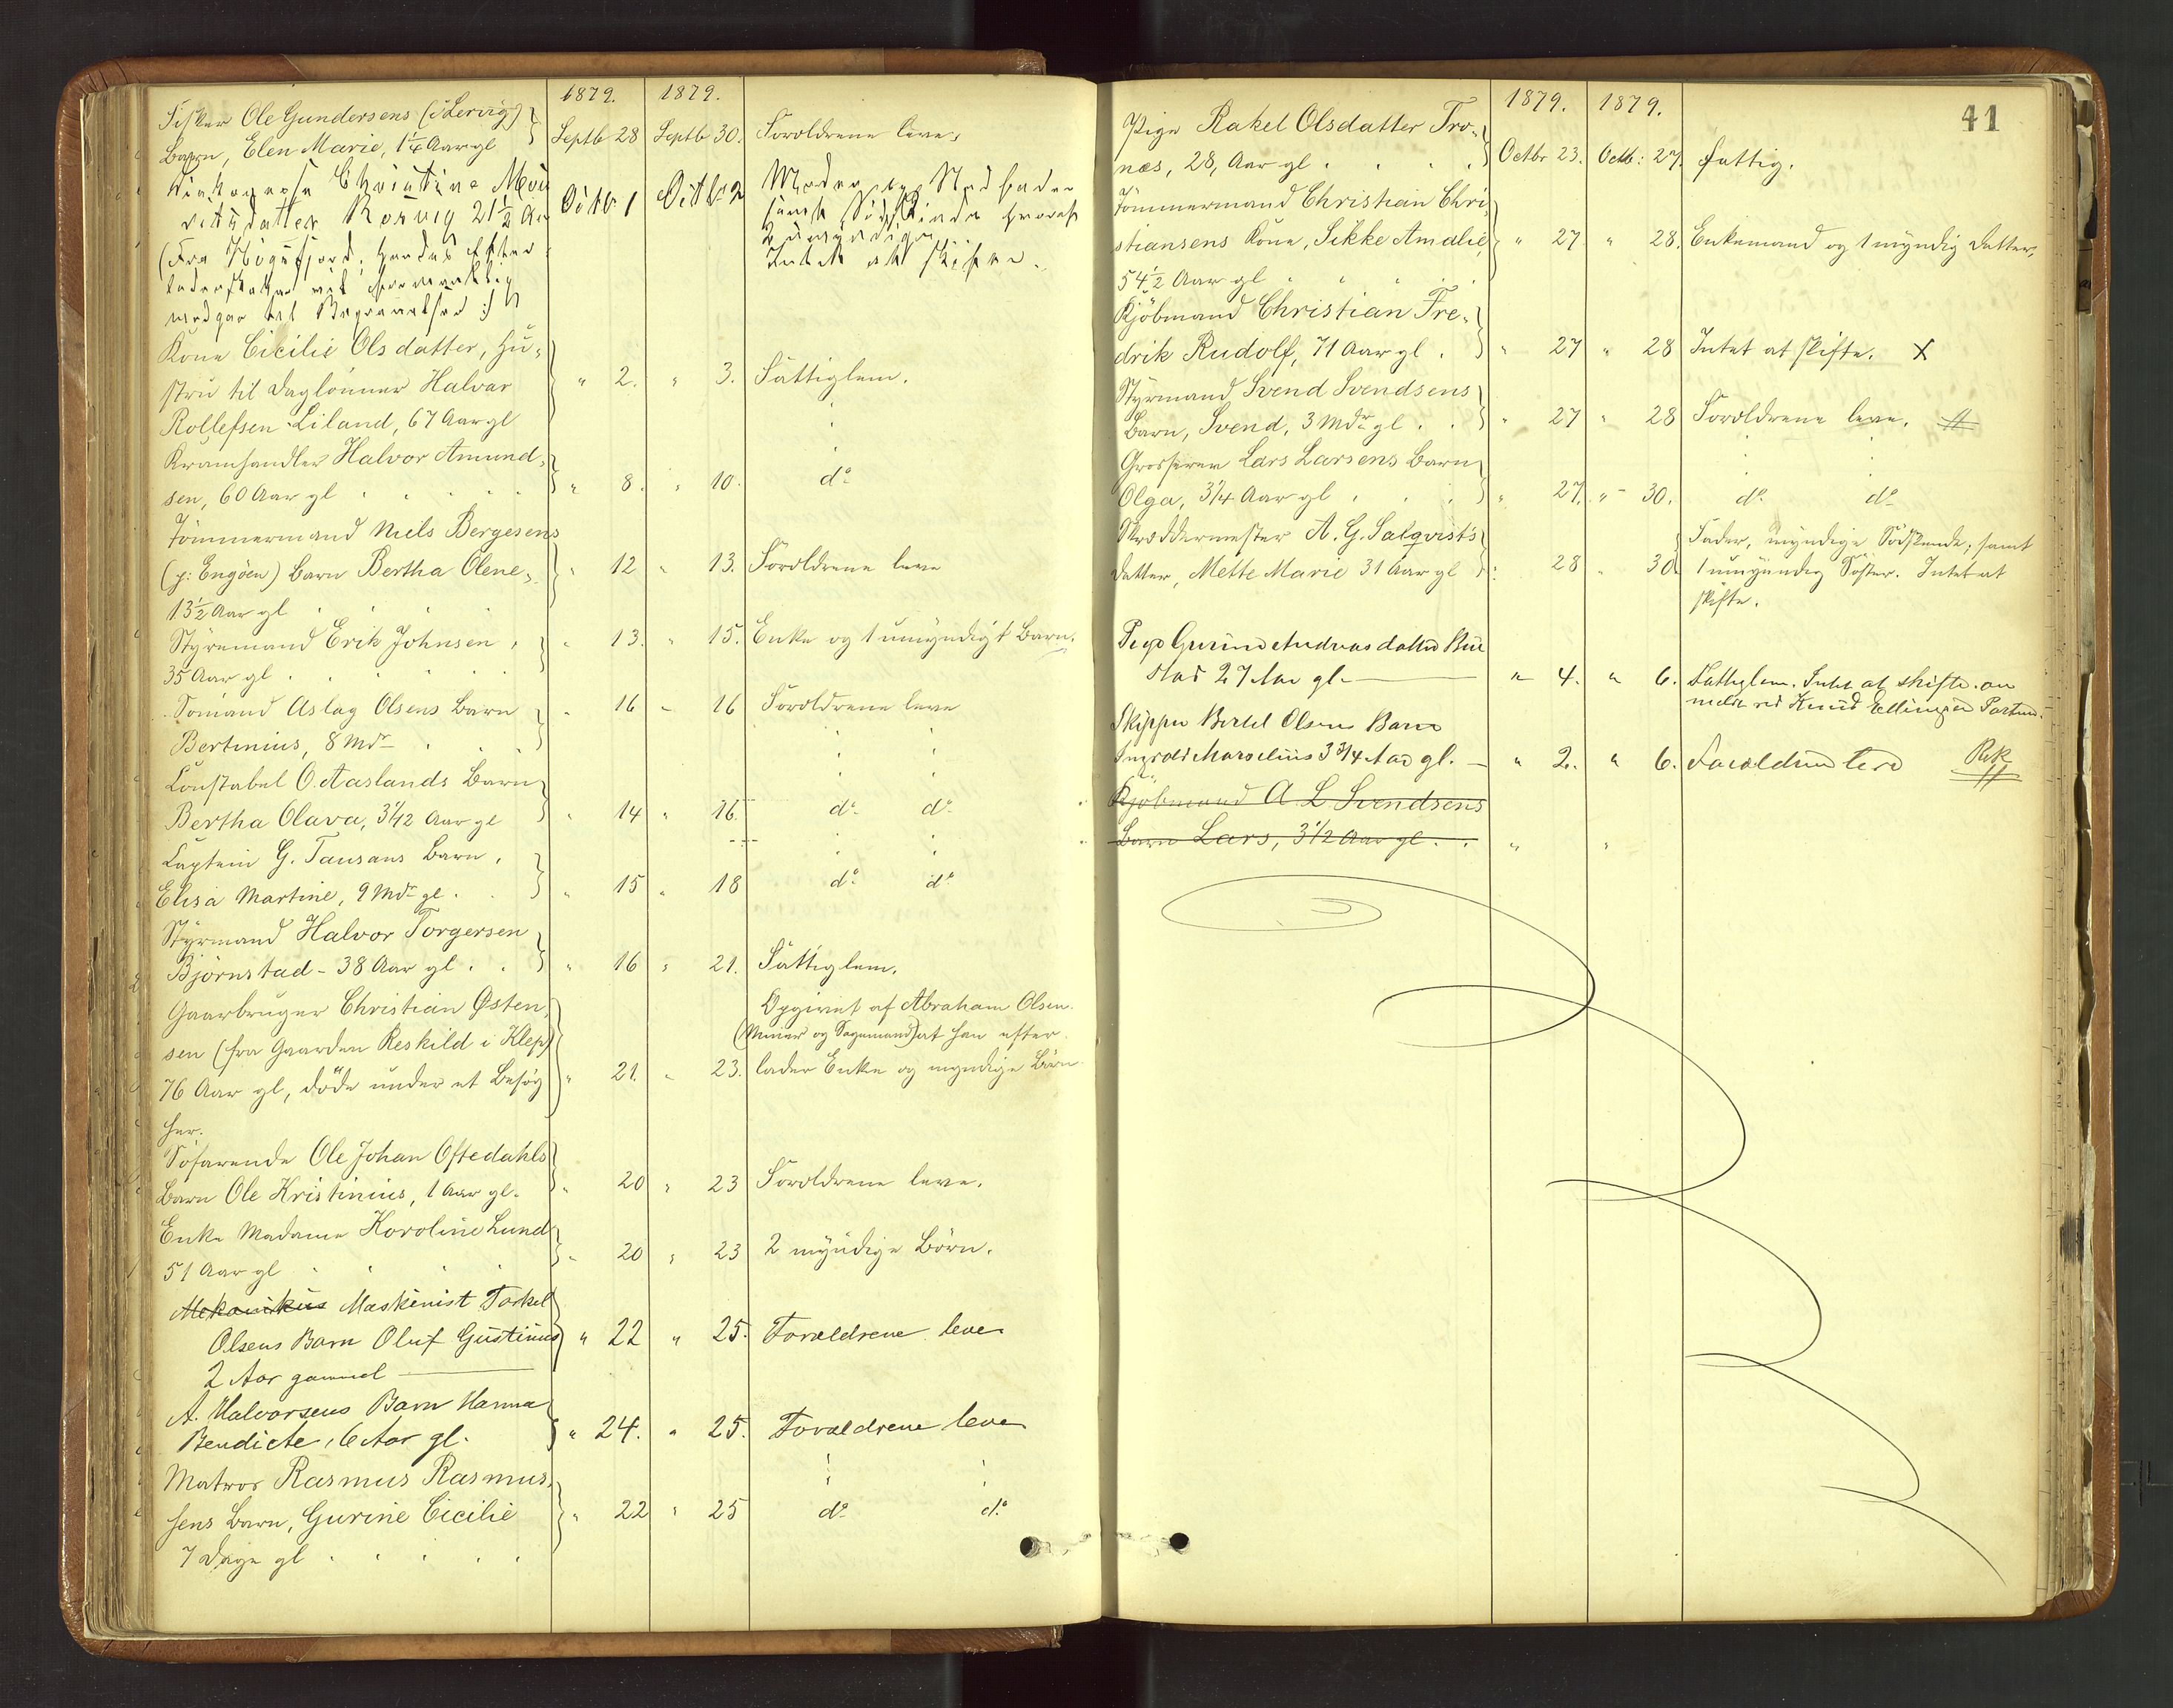 1879. 1879.
Fisker Ole Gundersens (i Lervig)
Barn, Elen Marie, 1 1/4 Aar gl Septb 28 Septb 30. Forældrene leve,
Christine Mou
ritsdatter Rosvig 21 1/2 Aar Octbr 1 Octbr 2 Moder og Stedfader
samt Sødskinde hvoraf
2 umyndige
Intet at skifte.
(Fra Høgsfjord, hendes Efter
ladenskaber vil
medgaa til Begravelsen :)
Kone Cicilie Olsdatter, Hu-
stru til Daglønner Halvar " 2. " 3. Fattiglem.
Rollefsen Liland, 67 Aar gl
Kramhandler Halvor Amund-
sen, 60 Aar gl " 8. " 10. do
Tømmermand Niels Bergesens
(p: Engøen) Barn Bertha Olene, " 12 " 13. Forældrene leve
13 1/2 Aar gl
Styrmand Erik Johnsen " 13. " 15. Enke og 1 umyndigt Barn.
35 Aar gl
Sømand Aslag Olsens Barn " 16 " 16 Forældrene leve
Bertinius, 8 Mdr
Konstabel O. Aaslands Barn
Bertha Olava, 3 1/12 Aar gl " 14 " 16. do do
Captein G. Tausans Barn,
Elisa Martine, 9 Mdr gl. " 15 " 18 do do
Styrmand Halvor Torgersen
Bjørnstad - 38 Aar gl. " 16 " 21. Fattiglem.
Gaarbruger Christian Østen- Opgivet af Abraham Olsen
sen (fra Gaarden Reskild i Klep) (Minier og Sagemand) at han efter
76 Aar gl, døde under et Besøg " 21. " 23. lader Enke og myndige Børn
her.
Søfarende Ole Johan Oftedahls
Barn Ole Kristinius, 1 Aar gl. " 20 " 23 Forældrene leve.
Enke Madame Koroline Lund
51 Aar gl " 20 " 23 2 myndige Børn.
Mekanikus Maskinist Torkel
Olsens Barn Oluf Gustinus " 22 " 25. Forældrene leve
2 Aar gammel
A. Halvorsens Barn Hanna
Bendicte, 6 Aar gl. " 24. " 25. Forældrene leve
Matros Rasmus Rasmus-
sens Barn, Gurine Cicilie " 22 " 25 do do
7 Dage gl
1879. 1879. 41
Pige Rakel Olsdatter Tro-
næs, 28, Aar gl Octbr 23. Octb: 27. fattig.
Tømmermand Christian Chri-
stiansens Kone, Sikke Amalie, " 27. " 28. Enkemand og 1 myndig Datter,
54 1/2 Aar gl
Kjøbmand Christian Fre-
drik Rudolf, 71 Aar gl. " 27 " 28 Intet at skifte. X
Styrmand Svend Svendsens
Barn, Svend, 3 Mdr gl. " 27 " 28 Forældrene leve.
Grosserer Lars Larsens Barn
Olga, 3 1/4 Aar gl. " 27. " 30. do do
Skræddermester A. G. Salqvists Fader, myndige Sødskende, samt
Datter, Mette Marie 31 Aar gl " 28 " 30. 1 umyndig Søster. Intet at
skifte.
Pige Gurine Andreasdatter Bue
stad 27 Aar gl. " 4. " 6. Fattiglem. Intet at skifte. an
meldt ved Knud Ellingsen
Skipper Bertel Olsens Barn
Marselius 3 3/4 Aar gl. " 2. " 6. Forældrene leve
Kjøbmand A. L. Svendsens
Barn Lars, 3 1/2 Aar gl. " "